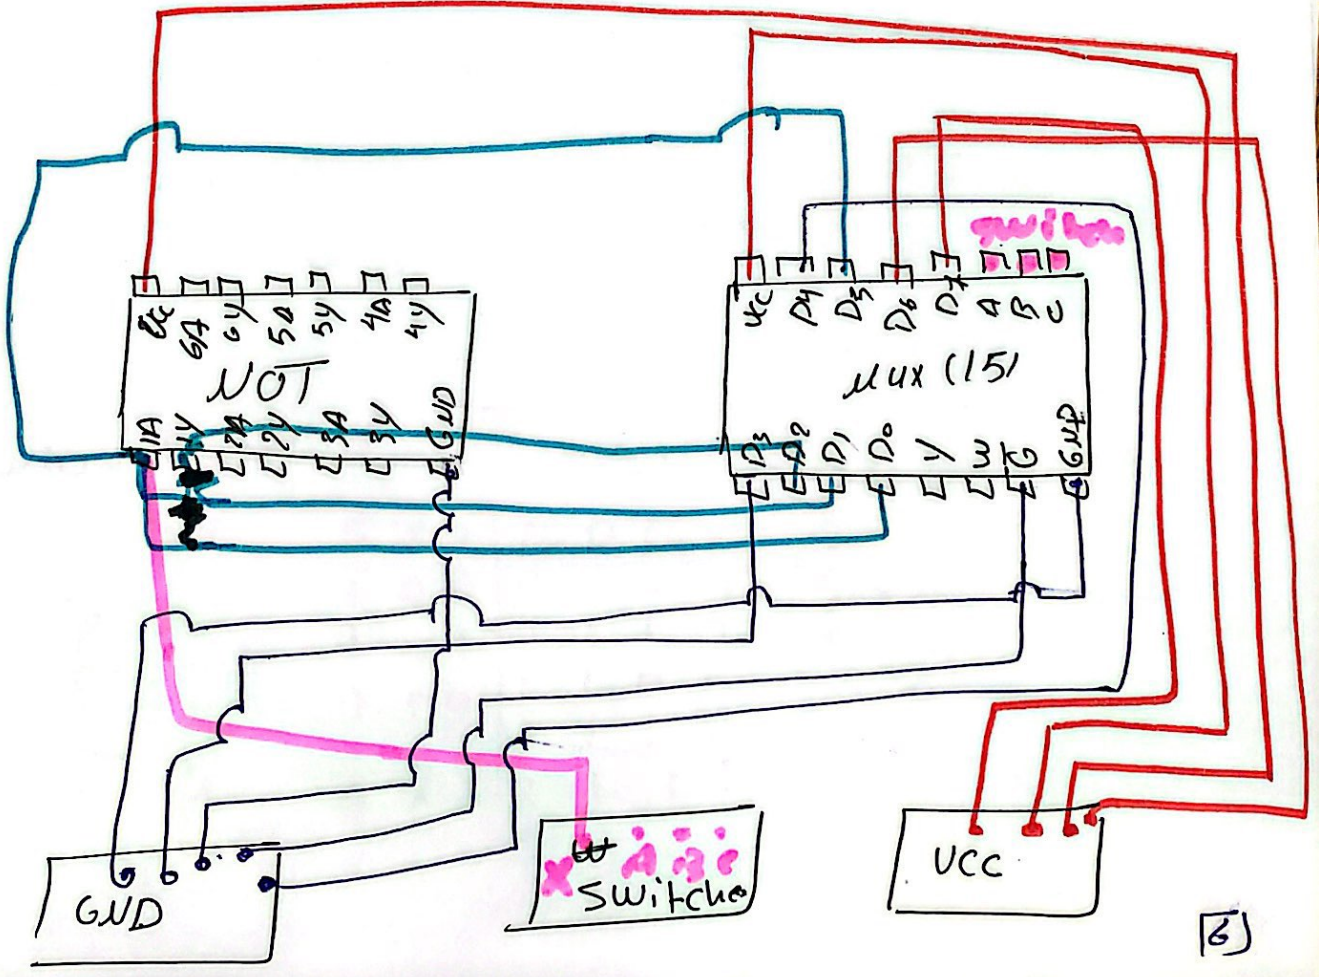 switch
Vcc 6A 6Y 5A 5Y 4A 4Y
NOT
1A 1Y 2A 2Y 3A 3Y GND
Vcc D4 D5 D6 D7 A B C
Mux (151
D3 D2 D1 D0 Y W G GND
GND
X W A B C
Switche
VCC
6